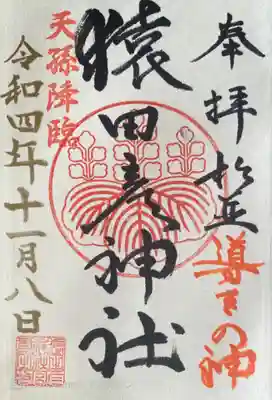 奉拝
導きの神
猿田彦神社
天孫降臨
令和四年十一月八日